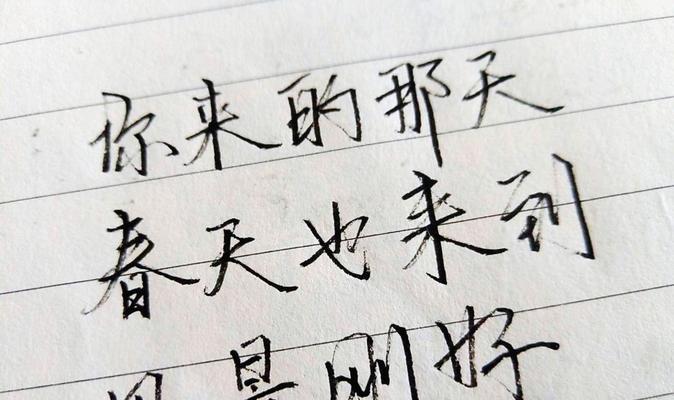 你来的那天
春天也来到
刚好